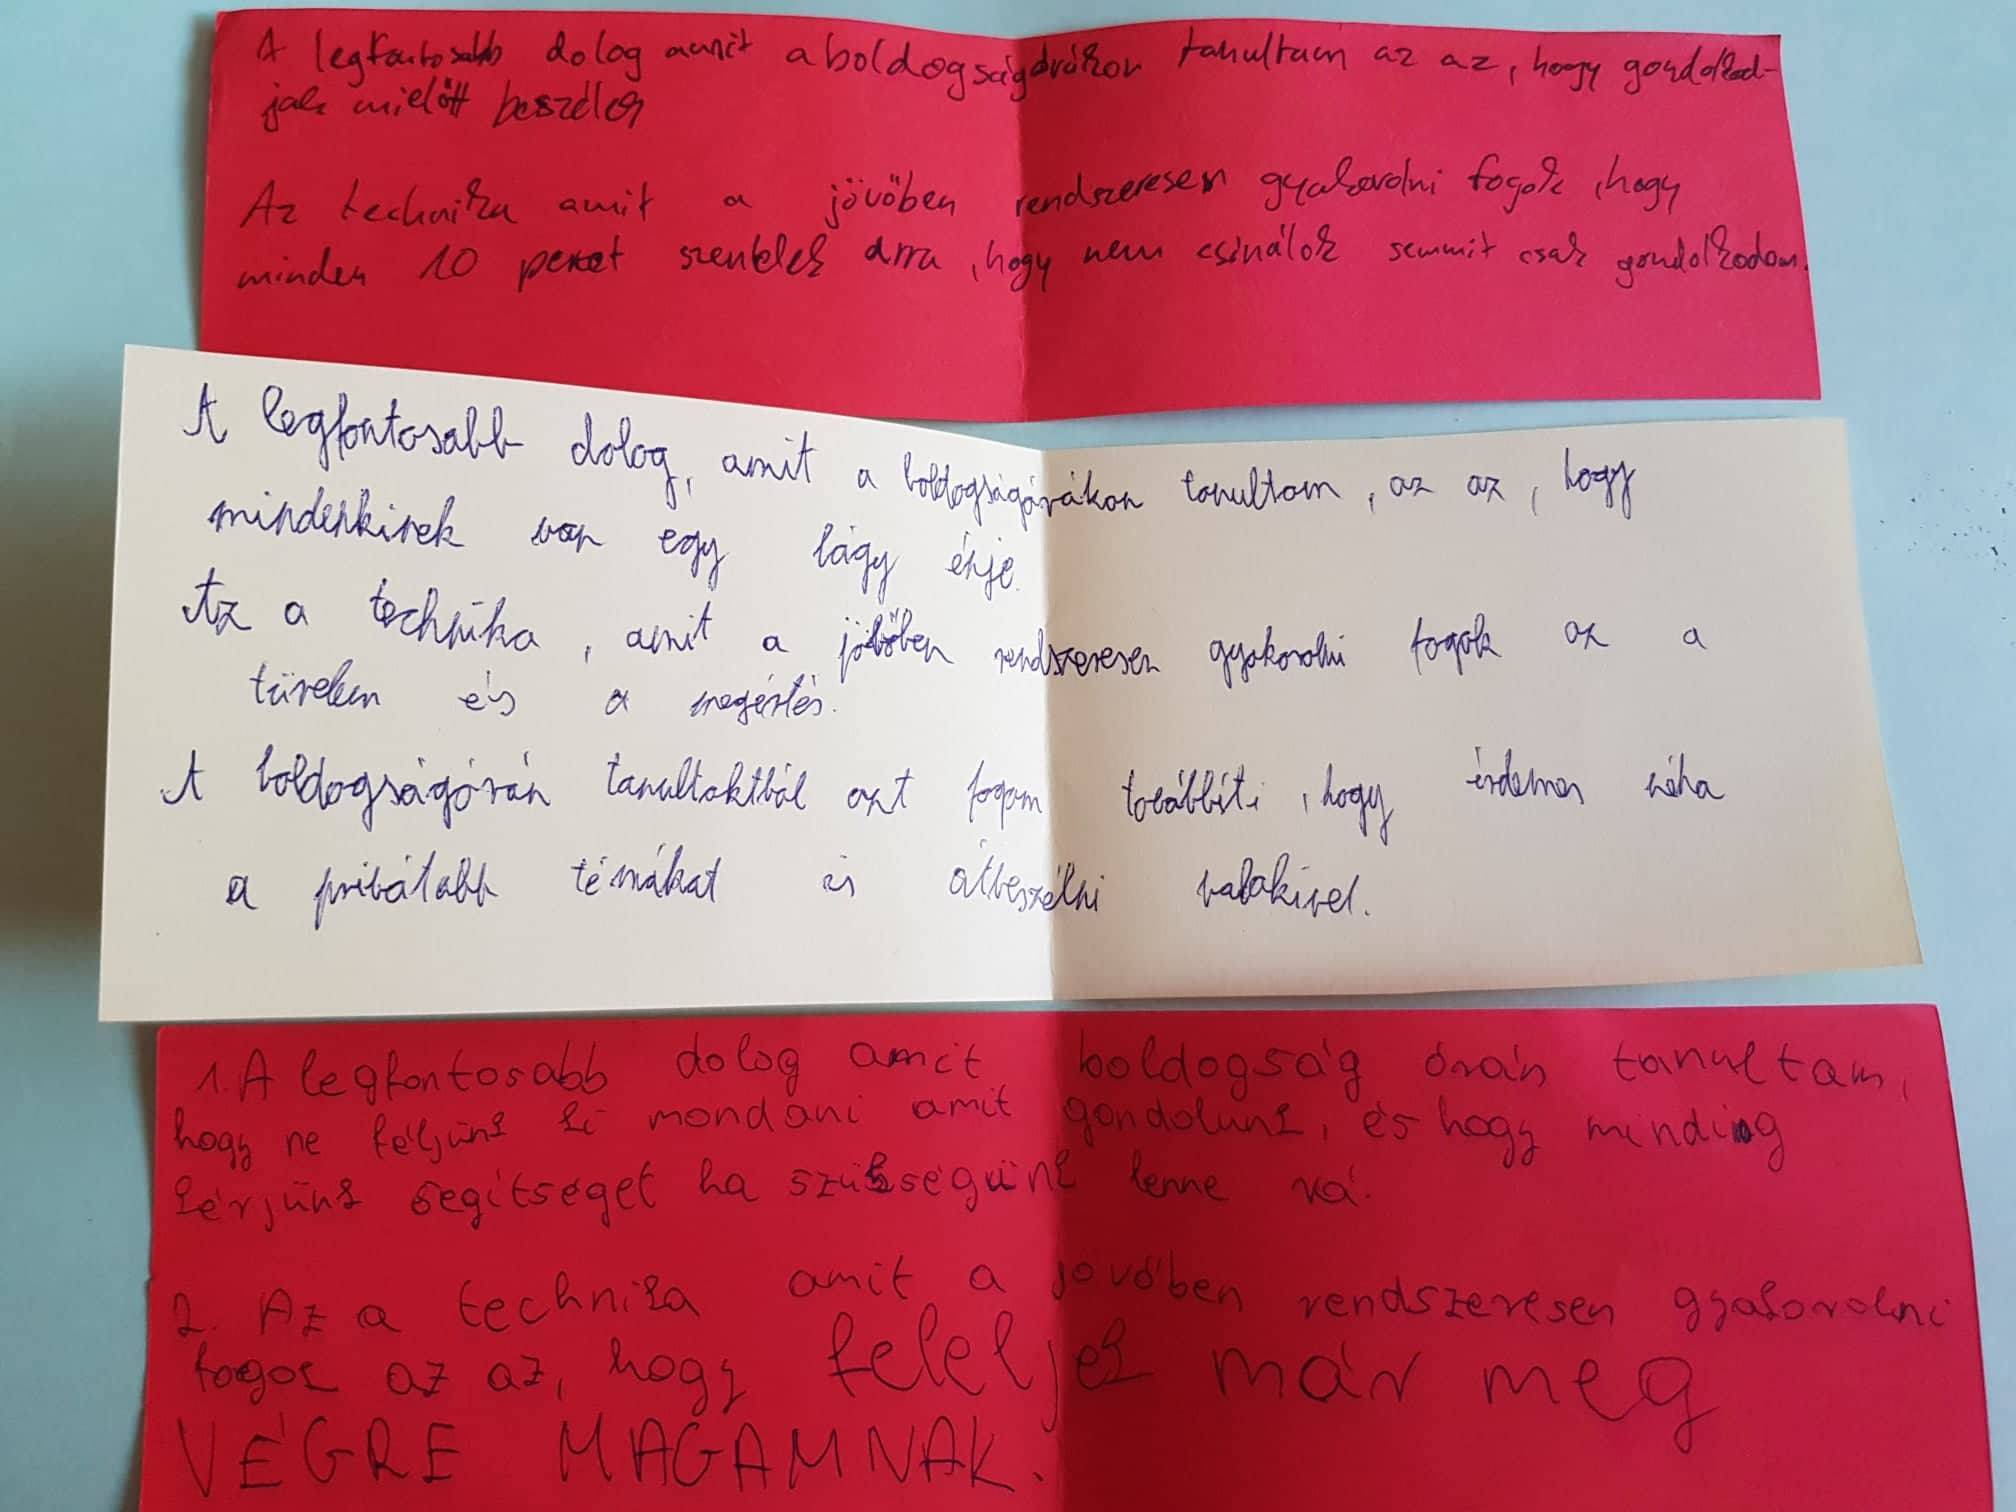 A legfontosabb dolog amit a boldogságórákon tanultam az az, hogy gondolkod-
jak mielőtt beszélek
Az technika amit a jövőben rendszeresen gyakorolni fogok, hogy
minden 10 percet szentelek arra, hogy nem csinálok semmit csak gondolkodom.
A legfontosabb dolog, amit a boldogságórákon tanultam, az az, hogy
mindenkinek van egy lágy énje.
Az a technika, amit a jövőben rendszeresen gyakorolni fogok az a
türelem és a megértés.
A boldogságórán tanultaktból azt fogom továbbíti, hogy érdemes néha
a privátabb témákat is átbeszélni valakivel.
1. A legfontosabb dolog amit boldogság órán tanultam,
hogy ne féljünk ki mondani amit gondolunk, és hogy minding
kérjünk segítséget ha szükségünk lenne rá.
2. Az a technika amit a jövőben rendszeresen gyakorolni
fogok az az, hogy feleljek már meg
VÉGRE MAGAMNAK.